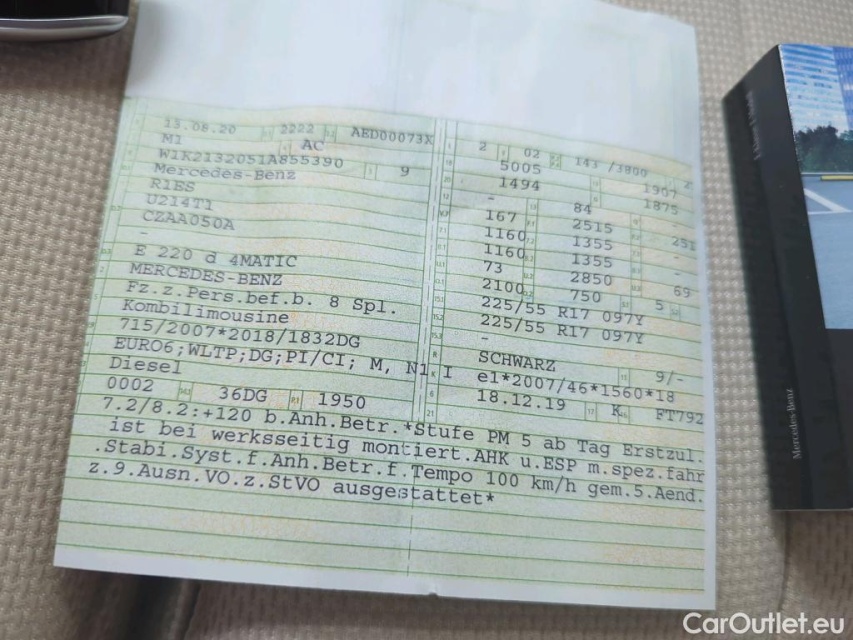 13.08.20 2222 AED00073X
M1 AC
W1K2132051A855390 9
Mercedes-Benz
R1ES
U214T1
CZAA050A
-
E 220 d 4MATIC
MERCEDES-BENZ
Fz.z.Pers.bef.b. 8 Spl.
Kombilimousine
715/2007*2018/1832DG
EURO6;WLTP;DG;PI/CI; M, N1 I
Diesel
0002 36DG 1950
2 02 143 /3800
5005 1907
1494 1875
- 84
167 2515 251
1160 1355 -
1160 1355 -
73 2850 69
2100 750 5
225/55 R17 097Y
225/55 R17 097Y
-
SCHWARZ 9/-
e1*2007/46*1560*18
18.12.19 K FT792
7.2/8.2:+120 b.Anh.Betr.*Stufe PM 5 ab Tag Erstzul.
ist bei werksseitig montiert.AHK u.ESP m.spez.fahr
.Stabi.Syst.f.Anh.Betr.f.Tempo 100 km/h gem.5.Aend.
z.9.Ausn.VO.z.StVO ausgestattet*
Mercedes-Benz
CarOutlet.eu